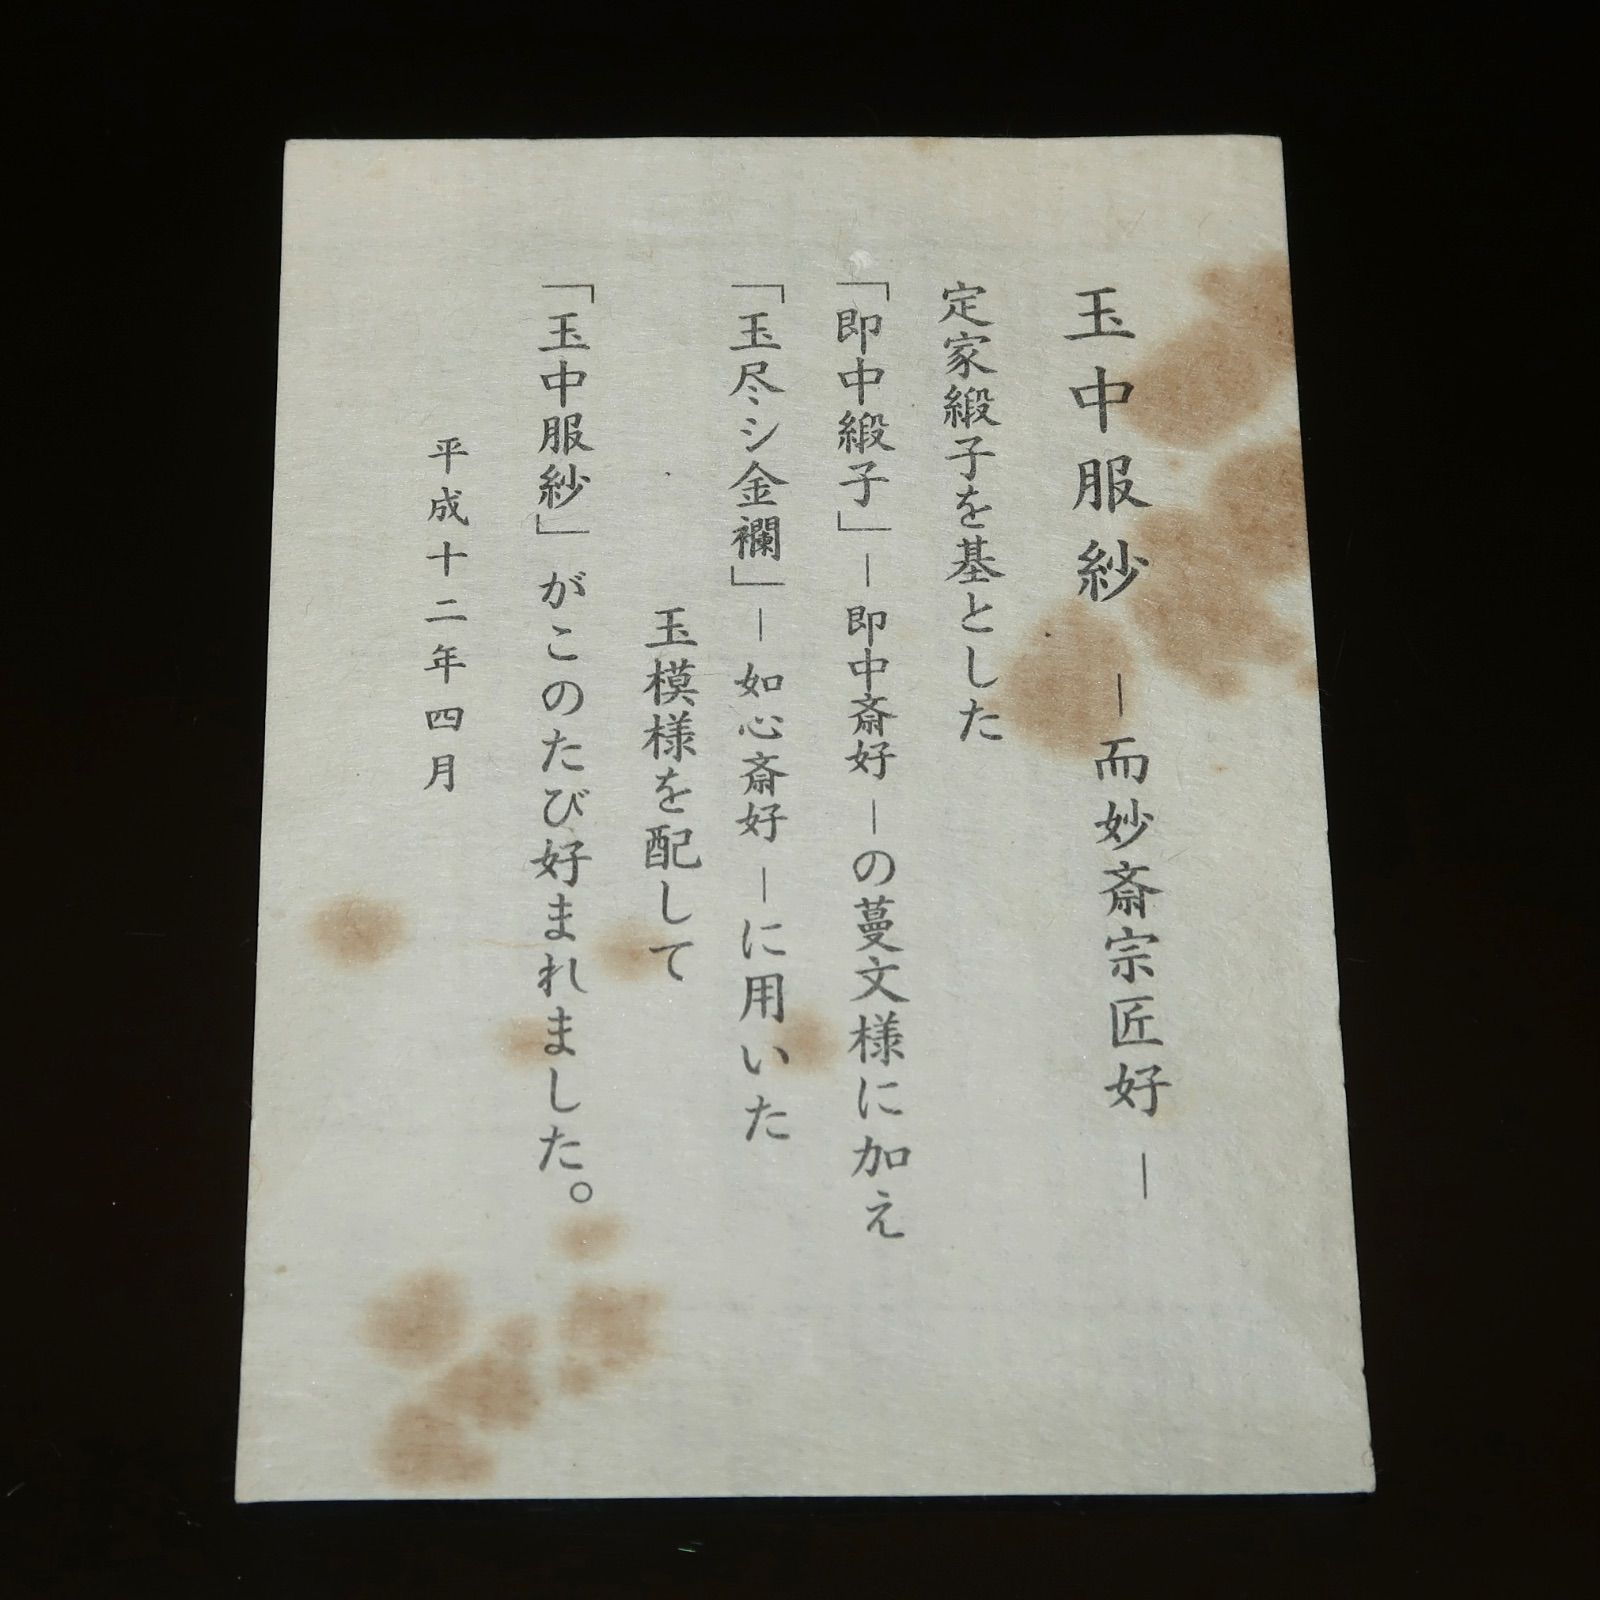 玉中服紗 ― 而妙斎宗匠好 ―
定家緞子を基とした
「即中緞子」―即中斎好―の蔓文様に加え
「玉尽シ金襴」―如心斎好―に用いた
玉模様を配して
「玉中服紗」がこのたび好まれました。
平成十二年四月